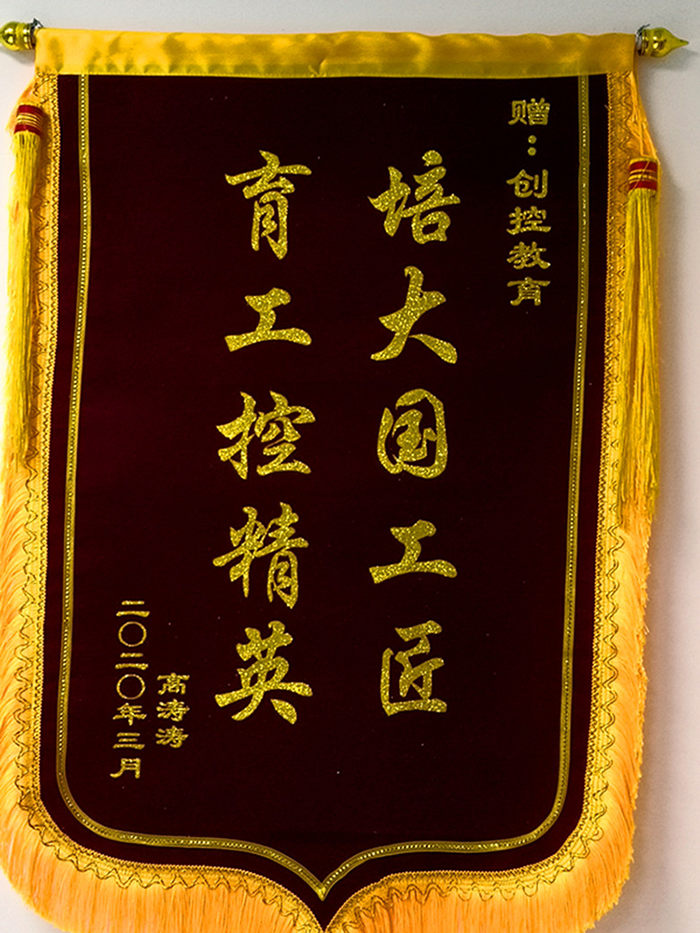 赠：创控教育
培大国工匠
育工控精英
高涛涛
二〇二〇年三月